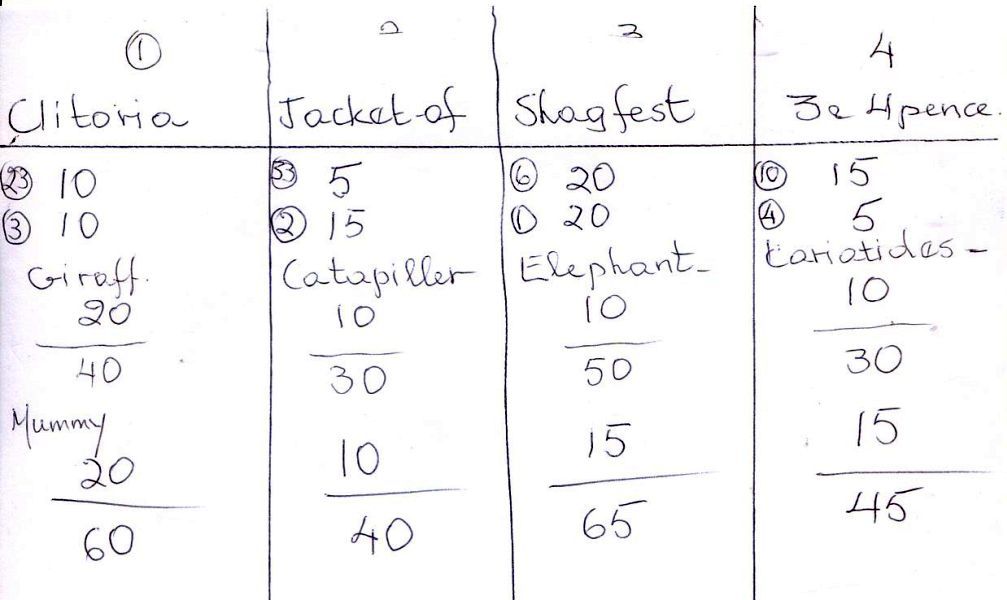 ① 2 3 4
Clitoria Jacket-of Shagfest 3 & 4 pence.
㉓ 10 ㉝ 5 ⑥ 20 ⑩ 15
③ 10 ② 15 ① 20 ④ 5
Giraff. Catapiller Elephant- Cariatides-
20 10 10 10
40 30 50 30
Mummy
20 10 15 15
60 40 65 45